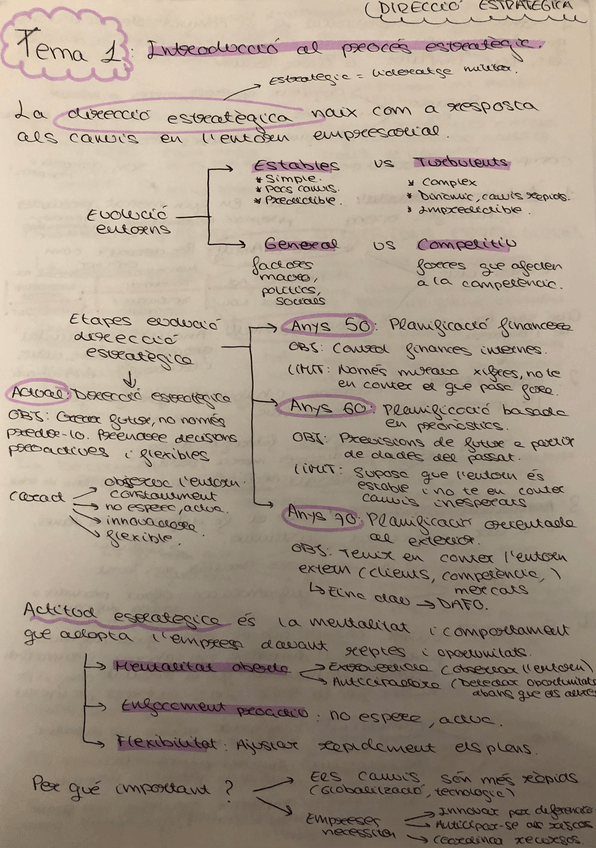 DIRECCIÓ ESTRATÈGICA
Tema 1: Introducció al procés estratègic.
Estratègic = lideratge militar.
La direcció estratègica naix com a resposta
als canvis en l'entorn empresarial.
Evolució
entorns
Estables vs Turbulents
* Simple.
* Pocs canvis.
* Predictible.
* Complex
* Dinàmic, canvis ràpids.
* Impredictible.
General vs Competitiu
factors
macro,
polítics,
socials
forces que afecten
a la competència.
Etapes evolució
direcció
estratègica
Anys 50: Planificació financera
OBJ: Control finances internes.
LIMIT: Només mirava xifres, no te
en conter el que pasa fora.
Anys 60: Planificació basada
en pronòstics.
OBJ: Previsions de futur a partir
de dades del passat.
LIMIT: Suposa que l'entorn és
estable i no te en conter
canvis inesperats
Anys 70: Planificació orientada
al exterior.
OBJ: Tenir en conter l'entorn
extern (clients, competència, mercats)
↳ Eina clau → DAFO.
Actual: Direcció estratègica
OBJ: Crear futur, no només
predir-lo. Prendre decisions
proactives i flexibles
caract
observa l'entorn
constantment
no espera, actua.
innovadora
flexible.
Actitud estratègica és la mentalitat i comportament
que adopta l'empresa davant reptes i oportunitats.
Mentalitat oberta → Extrovertida (observar l'entorn)
→ Anticipadora (Detectar oportunitats
abans que els altres
Enfocament proactiu: no espera, actua.
Flexibilitat: Ajustar rapidament els plans.
Per què important?
Els canvis són més ràpids
(Globalització, tecnologia)
Empreses
necessiten
→ Innovar per diferenciar
→ Anticipar-se als riscos
→ Coordinar recursos.